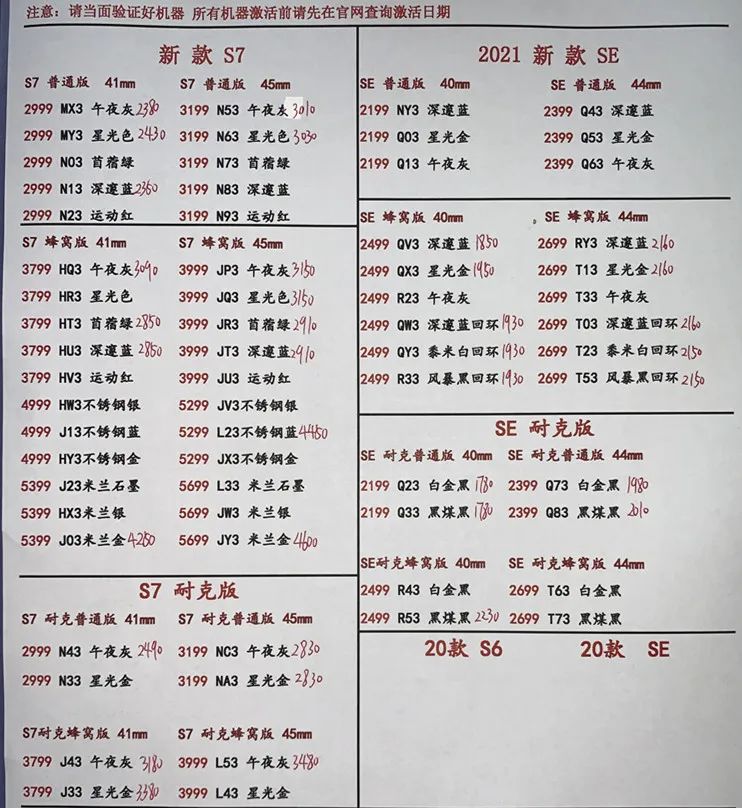 注意：请当面验证好机器 所有机器激活前请先在官网查询激活日期
新 款 S7
S7 普通版 41mm
2999 MX3 午夜灰2380
2999 MY3 星光色2430
2999 N03 首蓿绿
2999 N13 深邃蓝2350
2999 N23 运动红
S7 普通版 45mm
3199 N53 午夜灰3010
3199 N63 星光色3030
3199 N73 首蓿绿
3199 N83 深邃蓝
3199 N93 运动红
S7 蜂窝版 41mm
3799 HQ3 午夜灰3090
3799 HR3 星光色
3799 HT3 首蓿绿2850
3799 HU3 深邃蓝2850
3799 HV3 运动红
4999 HW3不锈钢银
4999 J13不锈钢蓝
4999 HY3不锈钢金
5399 J23米兰石墨
5399 HX3米兰银
5399 J03米兰金4250
S7 蜂窝版 45mm
3999 JP3 午夜灰3150
3999 JQ3 星光色3150
3999 JR3 首蓿绿2910
3999 JT3 深邃蓝2910
3999 JU3 运动红
5299 JV3不锈钢银
5299 L23不锈钢蓝4450
5299 JX3不锈钢金
5699 L33 米兰石墨
5699 JW3 米兰银
5699 JY3 米兰金4600
S7 耐克版
S7 耐克普通版 41mm
2999 N43 午夜灰2490
2999 N33 星光金
S7 耐克普通版 45mm
3199 NC3 午夜灰2830
3199 NA3 星光金2830
S7耐克蜂窝版 41mm
3799 J43 午夜灰3180
3799 J33 星光金3380
S7 耐克蜂窝版 45mm
3999 L53 午夜灰3480
3999 L43 星光金
2021 新 款 SE
SE 普通版 40mm
2199 NY3 深邃蓝
2199 Q03 星光金
2199 Q13 午夜灰
SE 普通版 44mm
2399 Q43 深邃蓝
2399 Q53 星光金
2399 Q63 午夜灰
SE 蜂窝版 40mm
2499 QV3 深邃蓝1850
2499 QX3 星光金1950
2499 R23 午夜灰
2499 QW3 深邃蓝回环1930
2499 QY3 黍米白回环1930
2499 R33 风暴黑回环1930
SE 蜂窝版 44mm
2699 RY3 深邃蓝2160
2699 T13 星光金2160
2699 T33 午夜灰
2699 T03 深邃蓝回环2160
2699 T23 黍米白回环2150
2699 T53 风暴黑回环2150
SE 耐克版
SE 耐克普通版 40mm
2199 Q23 白金黑1780
2199 Q33 黑煤黑1780
SE 耐克普通版 44mm
2399 Q73 白金黑1980
2399 Q83 黑煤黑2010
SE耐克蜂窝版 40mm
2499 R43 白金黑
2499 R53 黑煤黑2230
SE 耐克蜂窝版 44mm
2699 T63 白金黑
2699 T73 黑煤黑
20款 S6
20款 SE